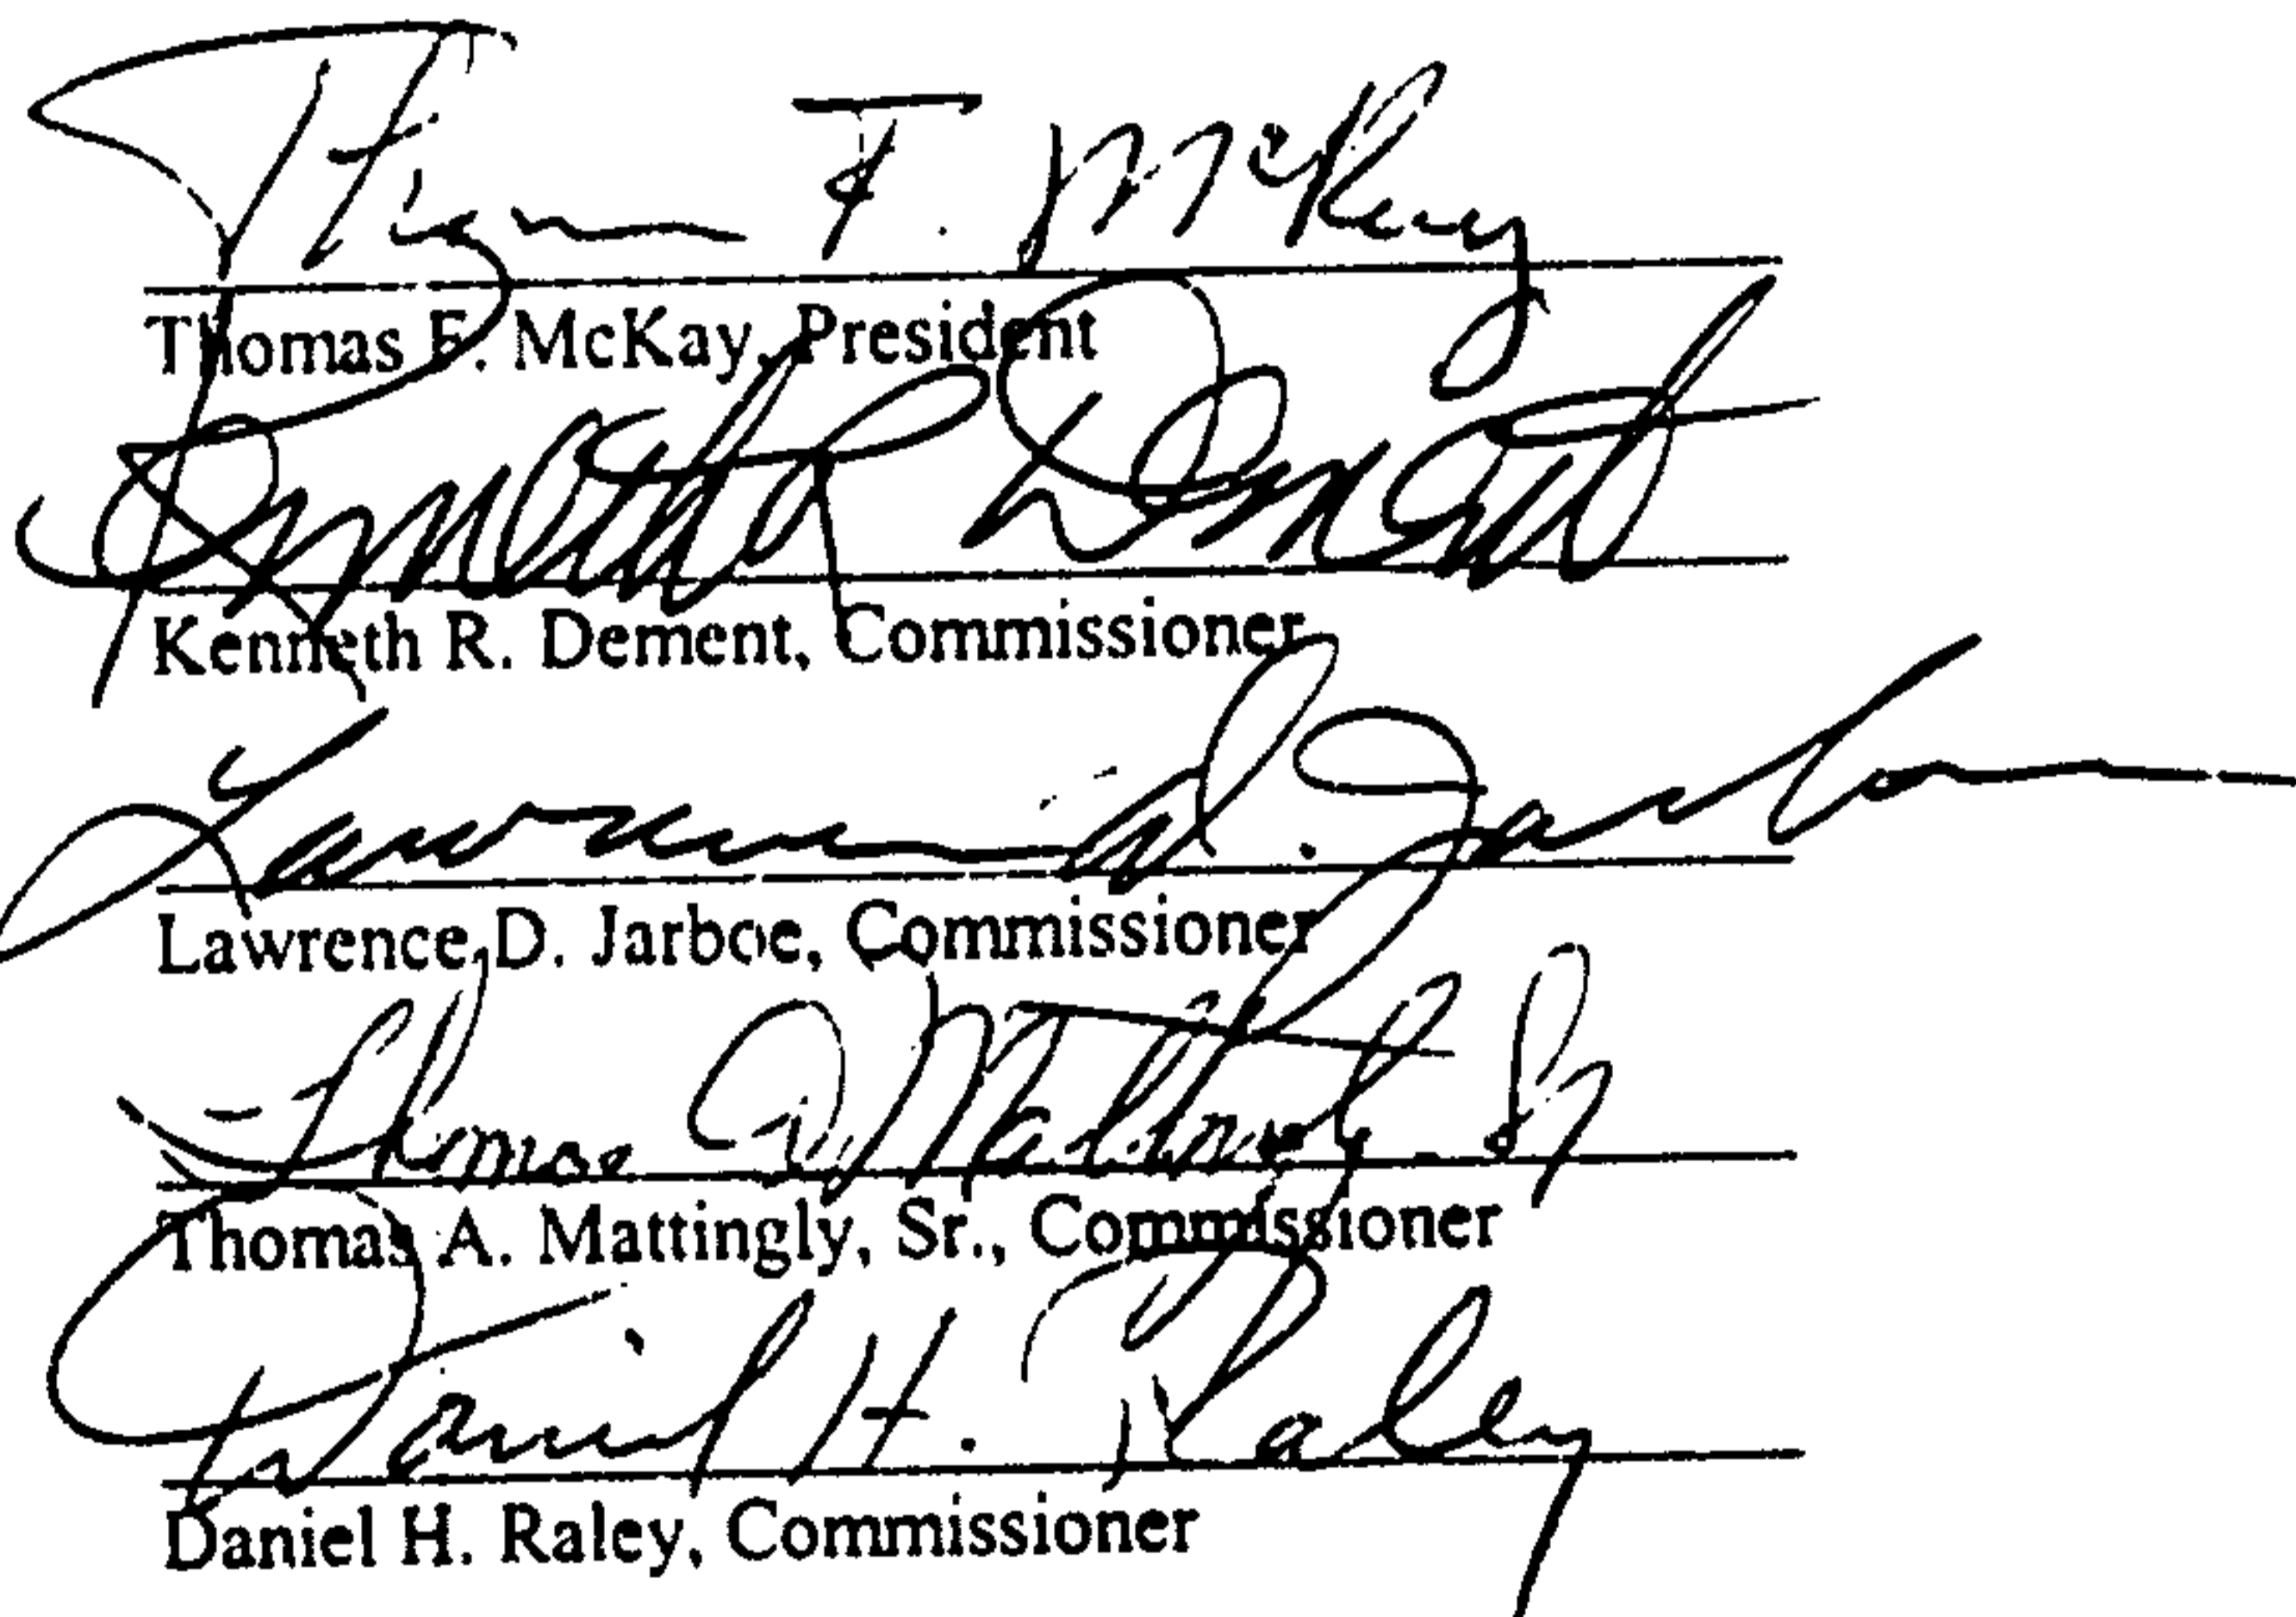 Thomas F. McKay
Thomas F. McKay, President
Kenneth R Dement
Kenneth R. Dement, Commissioner
Lawrence D. Jarboe
Lawrence D. Jarboe, Commissioner
Thomas A. Mattingly Sr
Thomas A. Mattingly, Sr., Commissioner
Daniel H. Raley
Daniel H. Raley, Commissioner